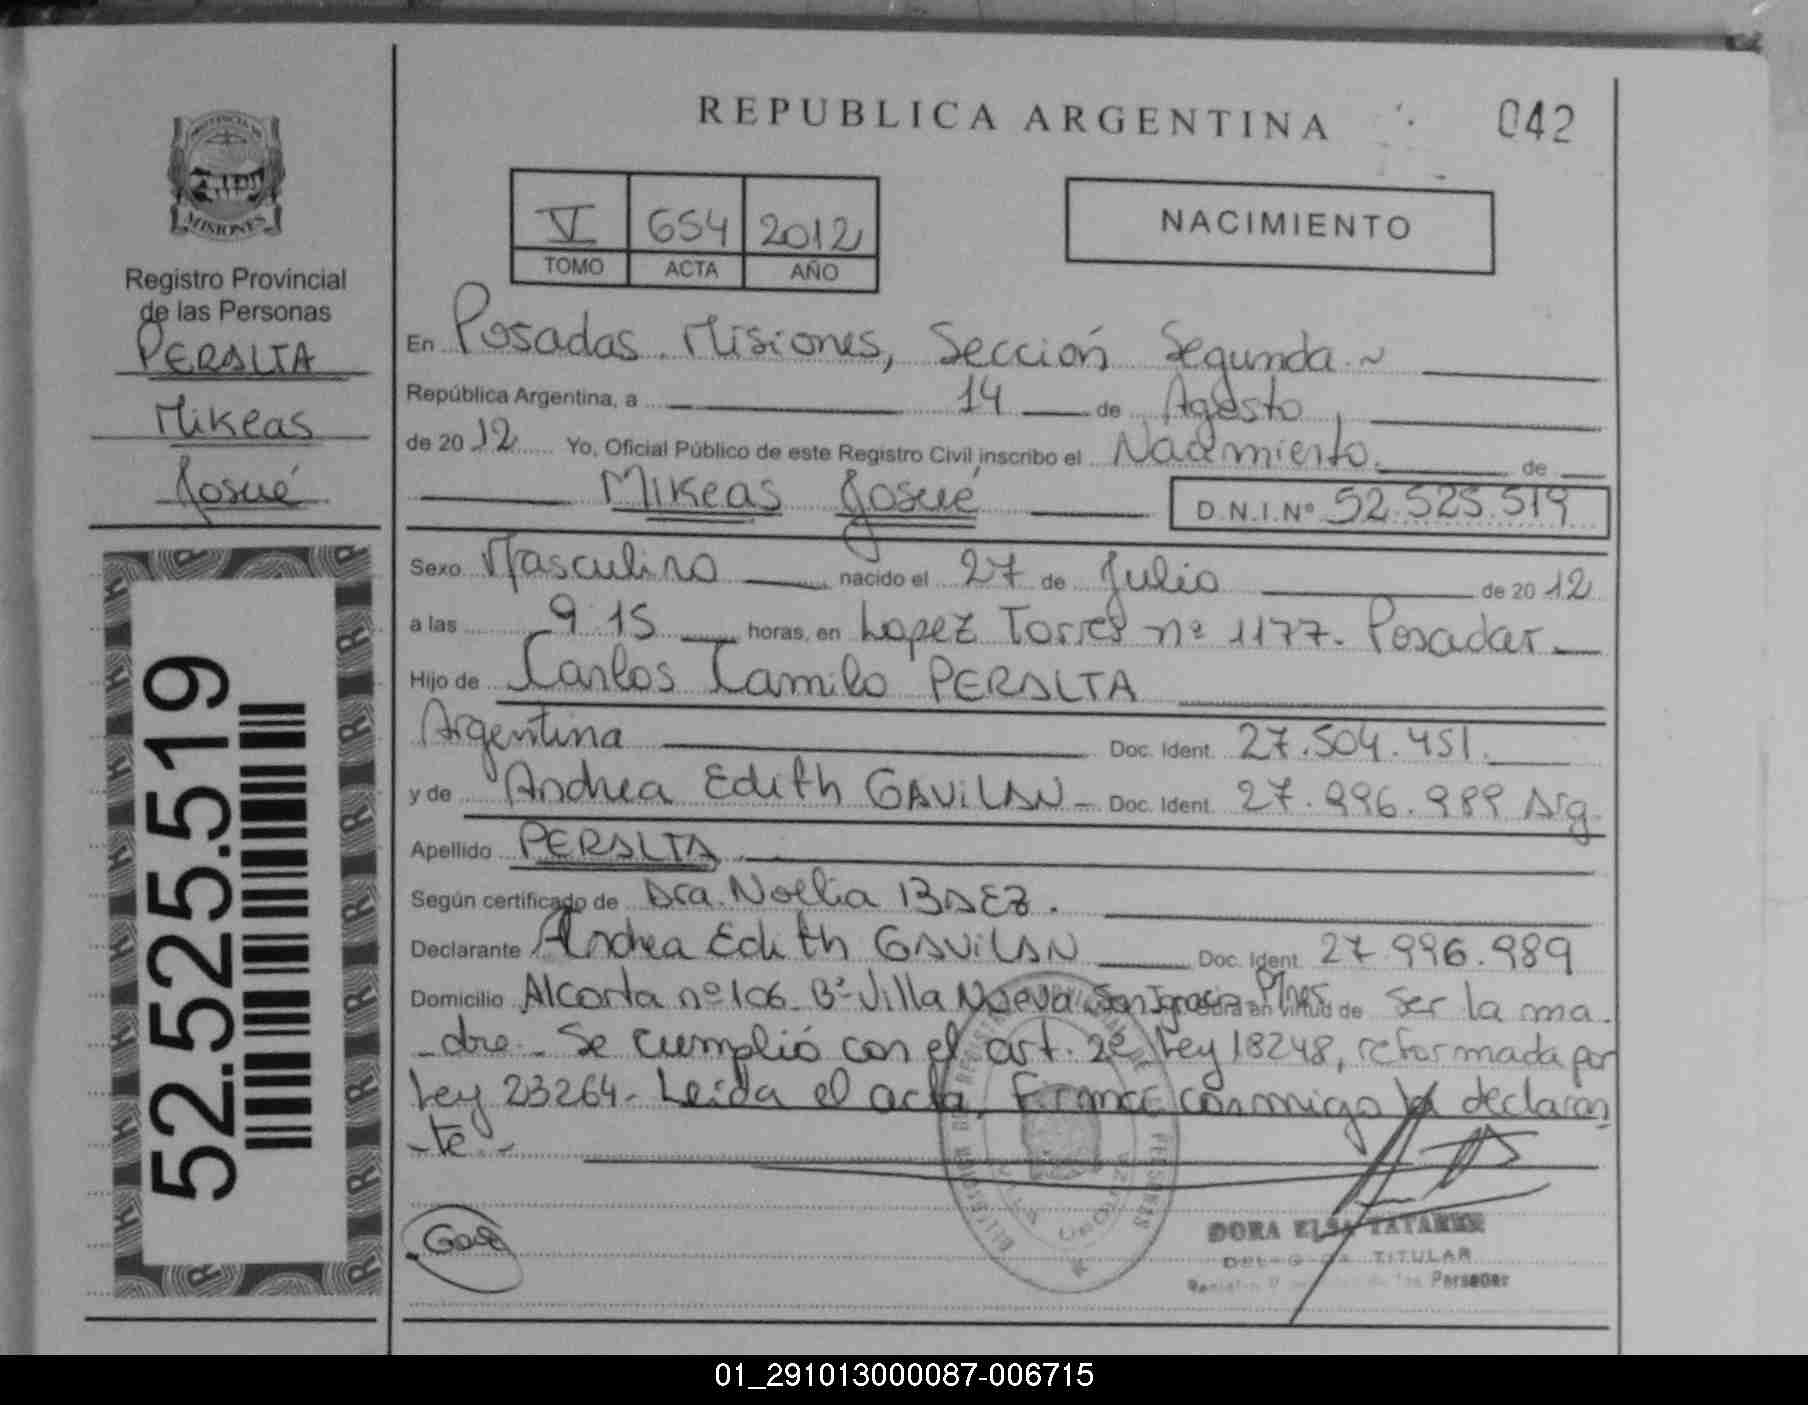 REPUBLICA ARGENTINA
042
Registro Provincial
de las Personas
PERALTA
Mikeas
Josué
52.525.519
V 654 2012
TOMO ACTA AÑO
NACIMIENTO
En Posadas. Misiones, Sección Segunda.~
República Argentina, a 14 de Agosto,
de 2012 Yo, Oficial Público de este Registro Civil inscribo el Nacimiento. de
Mikeas Josué D.N.I.Nº 52.525.519
Sexo Masculino nacido el 27 de Julio de 2012
a las 9:15 horas, en Lopez Torres nº 1177. Posadas.
Hijo de Carlos Camilo PERALTA
Argentina Doc. Ident. 27.504.451.
y de Andrea Edith GAViLAN - Doc. Ident. 27.996.989 Arg.
Apellido PERALTA
Según certificado de Dra. Noelia BAEZ.
Declarante Andrea Edith GAViLAN Doc. Ident. 27.996.989
Domicilio Alcorta nº 106. Bº Villa Nueva San Ignacio Mnes en virtud de ser la ma-
-dre.- Se cumplió con el art. 2º Ley 18248, reformada por
Ley 23264.- Leída el acta, firmó conmigo la declaran
-te.-
DORA ELSA
TITULAR
de las Personas
MISIONES
01_291013000087-006715